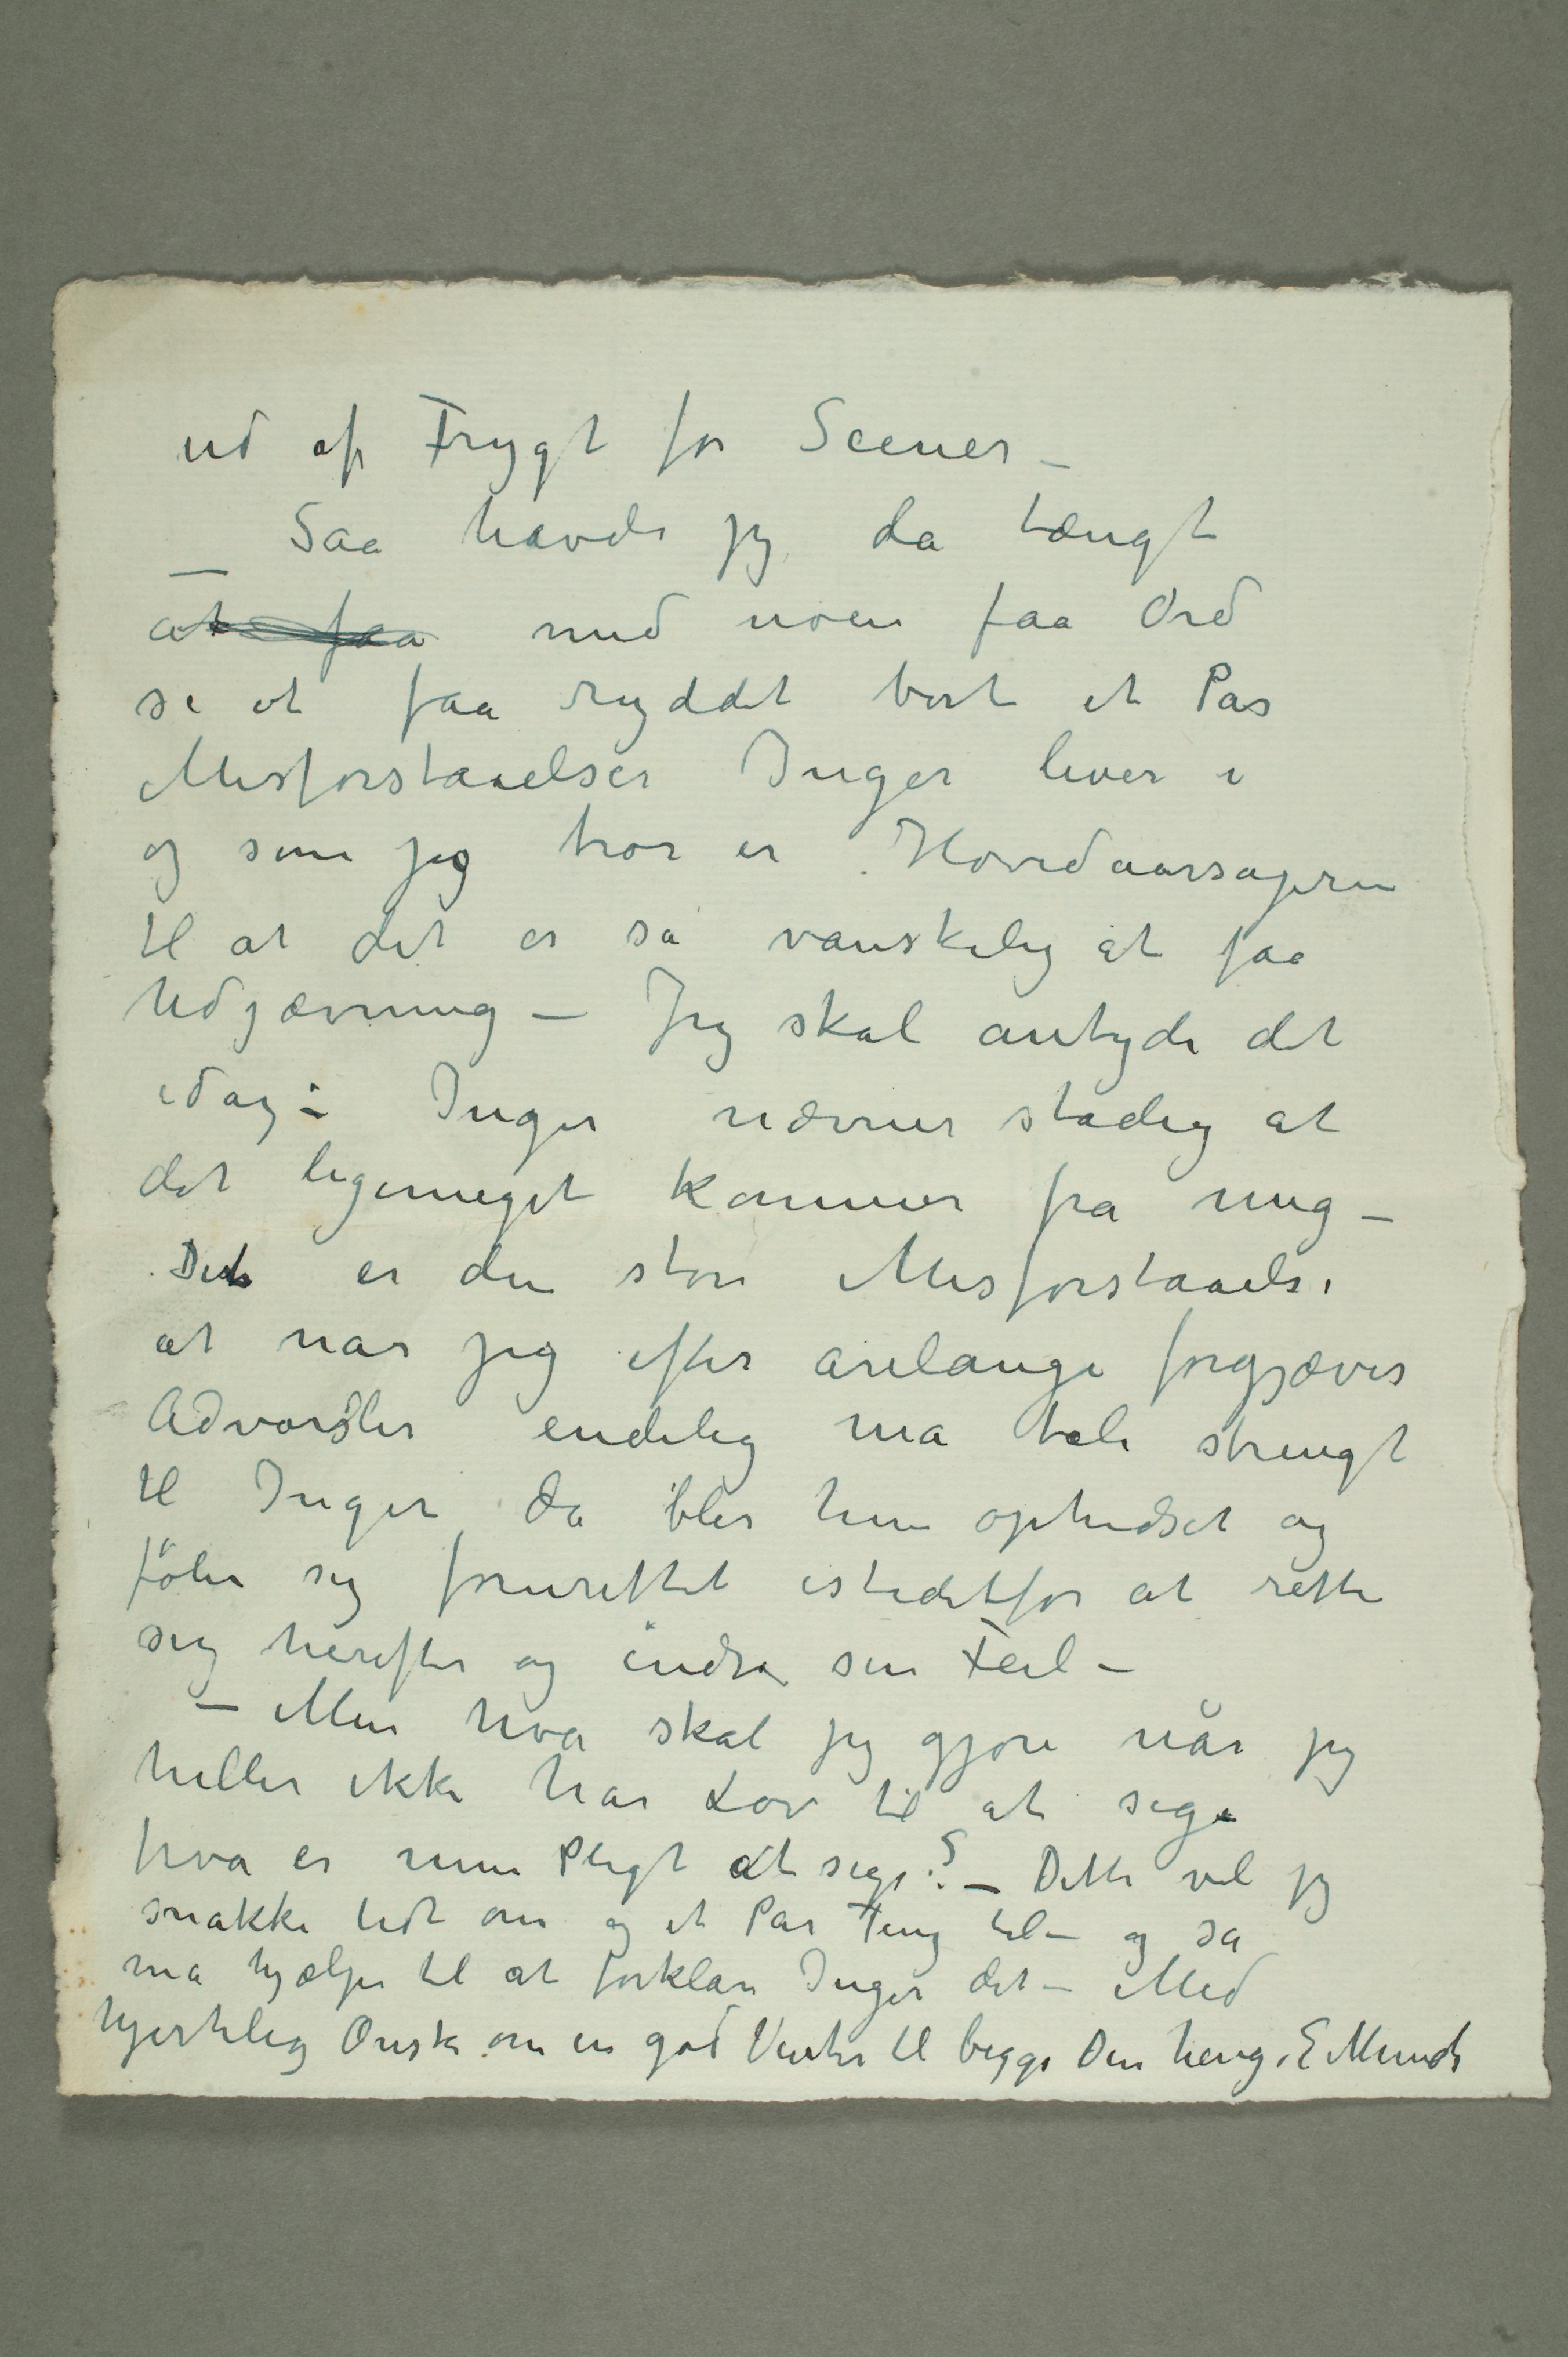 ud af Frygt for Scener –
– Saa havde jeg da tængt
at faa med noen faa Ord
se at faa ryddet bort et Par
Misforstaaelser Inger lever i
og som jeg tror er Hovedaarsagern
til at det er så vanskelig at faa
Udjævning – Jeg skal antyde det
idag: – Inger nævner stadig at
det ligemeget kommer fra mig –
Det er den store Misforstaaelse
at når jeg efter årelange forgjæves
Advarsler endelig må tale strengt
til Inger da blir hun ophidset og
föler sig forurettet istedetfor at rette
sig herefter og indse sin Feil –
– Men hva skal jeg gjøre når jeg
heller ikke har Lov til at sige
hva er min Pligt at sige? – Dette vil jeg
snakke lidt om og et Par Ting til – og så
må hjælpe til at forklare Inger det – Med
hjertelig Ønske om en god Vinter til begge Din heng. E Munch